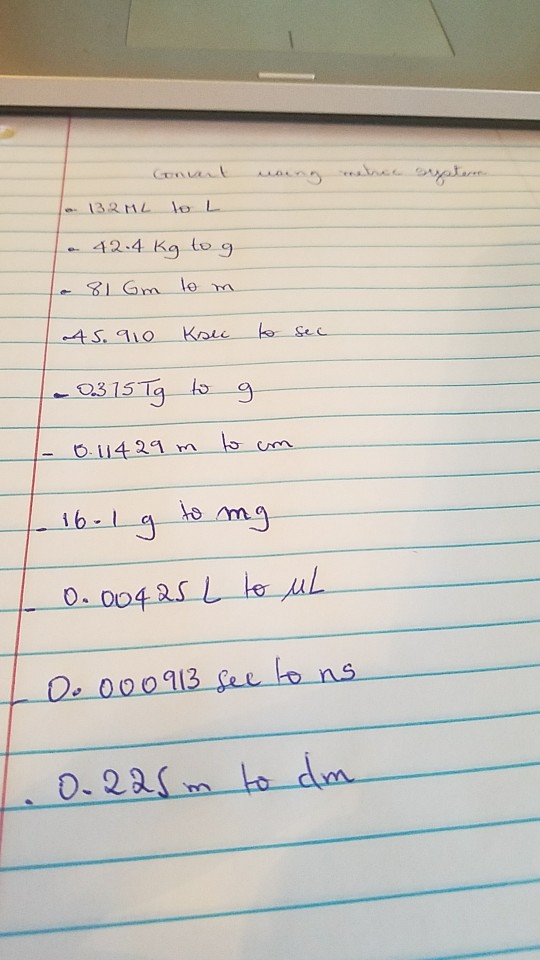 Convert using metric system
- 132 ML to L
- 42.4 Kg to g
- 81 Gm to m
- 45.910 Ksec to sec
- 0.375 Tg to g
- 0.11429 m to cm
- 16.1 g to mg
- 0.00425 L to μL
- 0.000913 sec to ns
. 0.225 m to dm